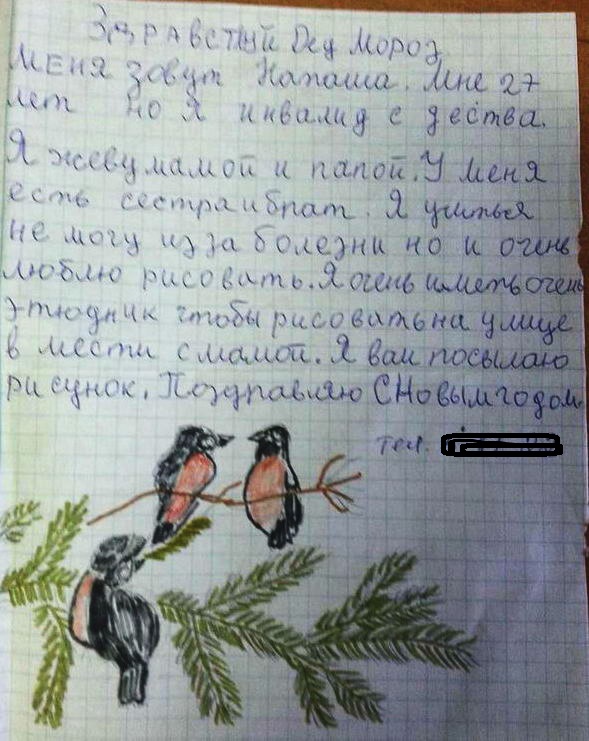 Здравстуй Дед Мороз
Меня зовут Наташа. Мне 27
лет но я инвалид с дества.
Я жеву мамой и папой. У меня
есть сестра и брат. Я учиться
не могу из за болезни но и очень
люблю рисовать. Я очень иметь очень
этюдник чтобы рисовать на улице
в мести с мамой. Я вам посылаю
рисунок. Поздравляю С Новым годом.
тел.